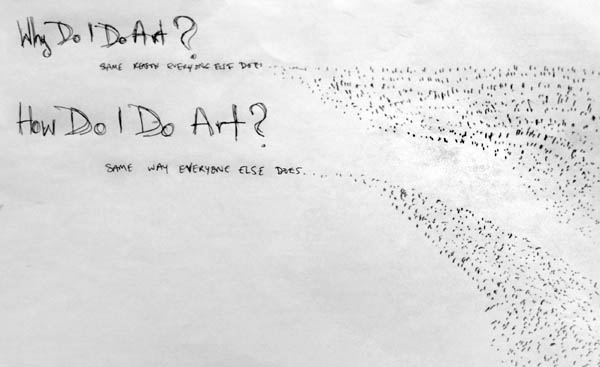 Why Do I Do Art?
SAME REASON EVERYONE ELSE DOES
How Do I Do Art?
SAME WAY EVERYONE ELSE DOES...